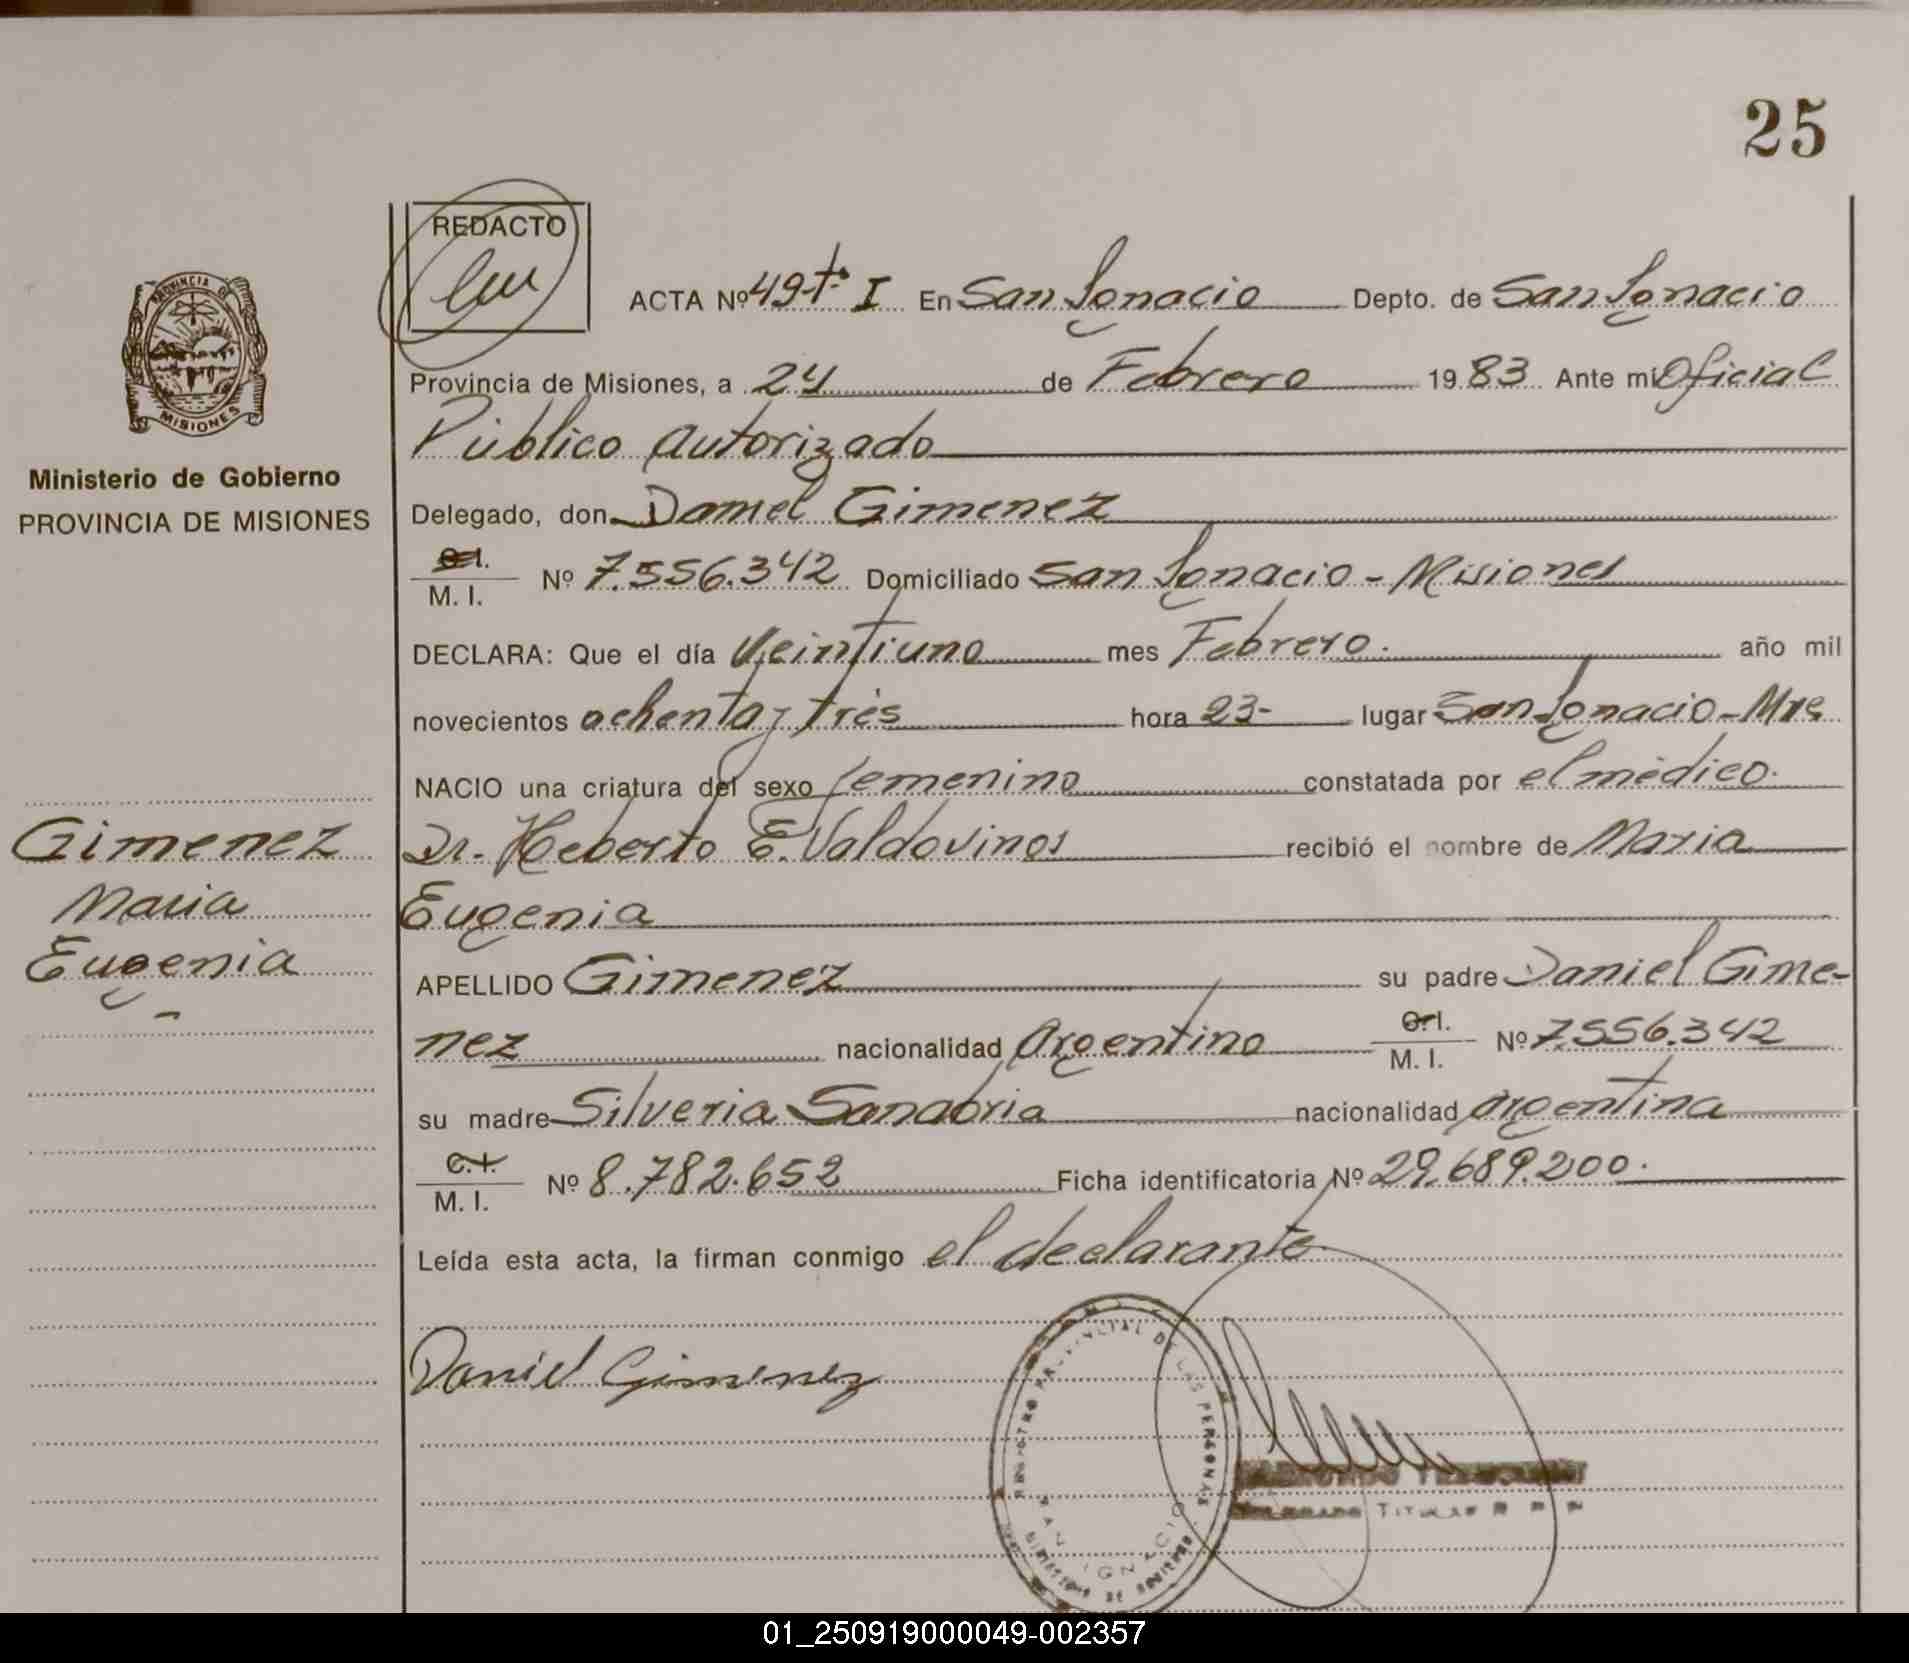 25
REDACTO
ACTA Nº 49-Tº I En San Ignacio Depto. de San Ignacio
PROVINCIA DE
MISIONES
Provincia de Misiones, a 24 de Febrero 1983 Ante mi Oficial
Público autorizado
Ministerio de Gobierno
PROVINCIA DE MISIONES
Delegado, don Daniel Gimenez
C.I.
M. I. Nº 7.556.342 Domiciliado San Ignacio - Misiones
DECLARA: Que el día Veintiuno mes Febrero. año mil
novecientos ochenta y trés hora 23- lugar San Ignacio - Mnes
NACIO una criatura del sexo femenino constatada por el médico.
Gimenez
Maria
Eugenia
Dr. Heberto E. Valdovinos recibió el nombre de Maria
Eugenia
APELLIDO Gimenez su padre Daniel Gime-
nez nacionalidad Argentino C.I.
M. I. Nº 7.556.342
su madre Silveria Sanabria nacionalidad Argentina
C.I.
M. I. Nº 8.782.652 Ficha identificatoria Nº 29.689.200.
Leída esta acta, la firman conmigo el declarante.
Daniel Gimenez
REGISTRO PROVINCIAL DE LAS PERSONAS
SAN IGNACIO
MINISTERIO DE GOBIERNO
DELEGADO TITULAR R P P
01_250919000049-002357